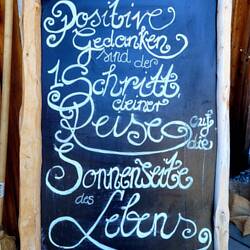 Positive
Gedanken
sind der
1. Schritt
deiner
Reise auf
die
Sonnenseite
des
Lebens